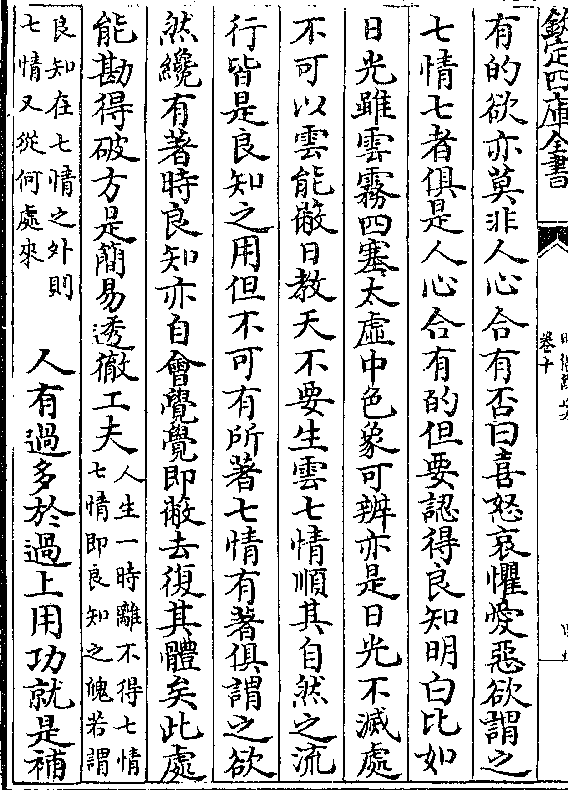 欽定四庫全書
卷十
有的欲亦莫非人心合有否曰喜怒哀懼愛惡欲謂之
七情七者俱是人心合有的但要認得良知明白比如
日光雖雲霧四塞太虛中色象可辨亦是日光不滅處
不可以雲能蔽日教天不要生雲七情順其自然之流
行皆是良知之用但不可有所著七情有著俱謂之欲
然纔有著時良知亦自會覺覺即蔽去復其體矣此處
能勘得破方是簡易透徹工夫
人生一時離不得七情
七情即良知之魄若謂
良知在七情之外則
七情又從何處來
人有過多於過上用功就是補